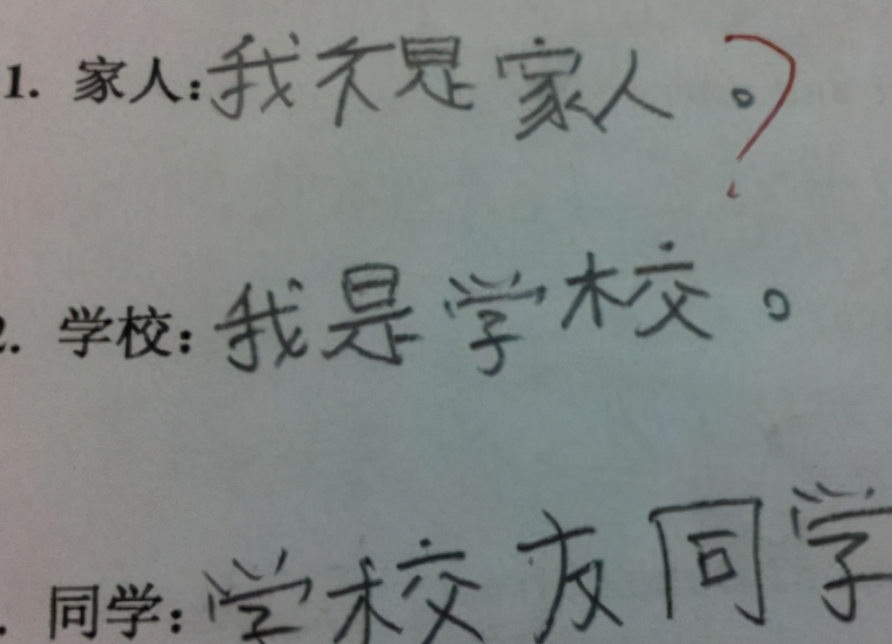 1. 家人:我不是家人。?
2. 学校:我是学校。
. 同学:学校友同学